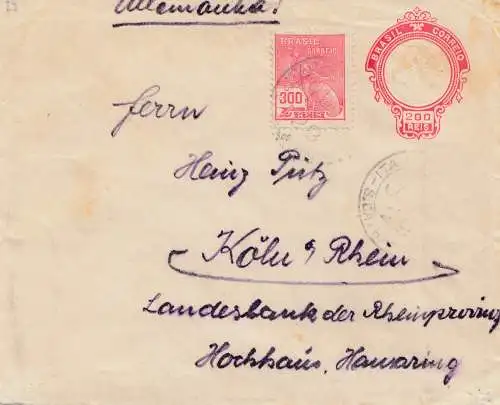 Allemanha!
BRASIL CORREIO
300
REIS
BRASIL CORREIO
200
REIS
Herrn
Heinz Pütz
Köln a/Rhein
Landesbank der Rheinprovinz
Hochhaus, Hansaring